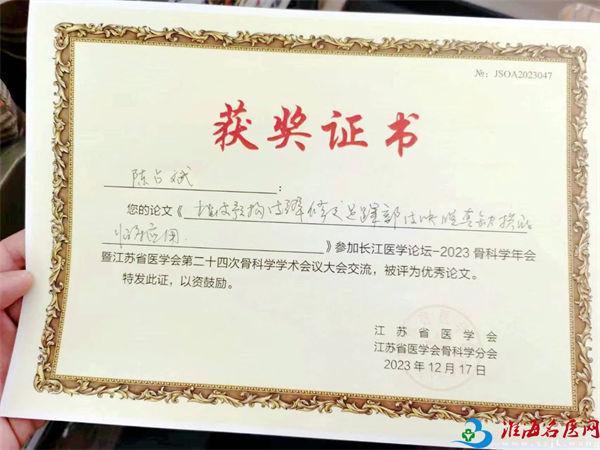 №: JSOA2023047
获奖证书
陈占斌:
您的论文《
临床应用 》参加长江医学论坛-2023骨科学年会
暨江苏省医学会第二十四次骨科学学术会议大会交流,被评为优秀论文。
特发此证,以资鼓励。
江苏省医学会
江苏省医学会骨科学分会
2023年12月17日
淮海名医网